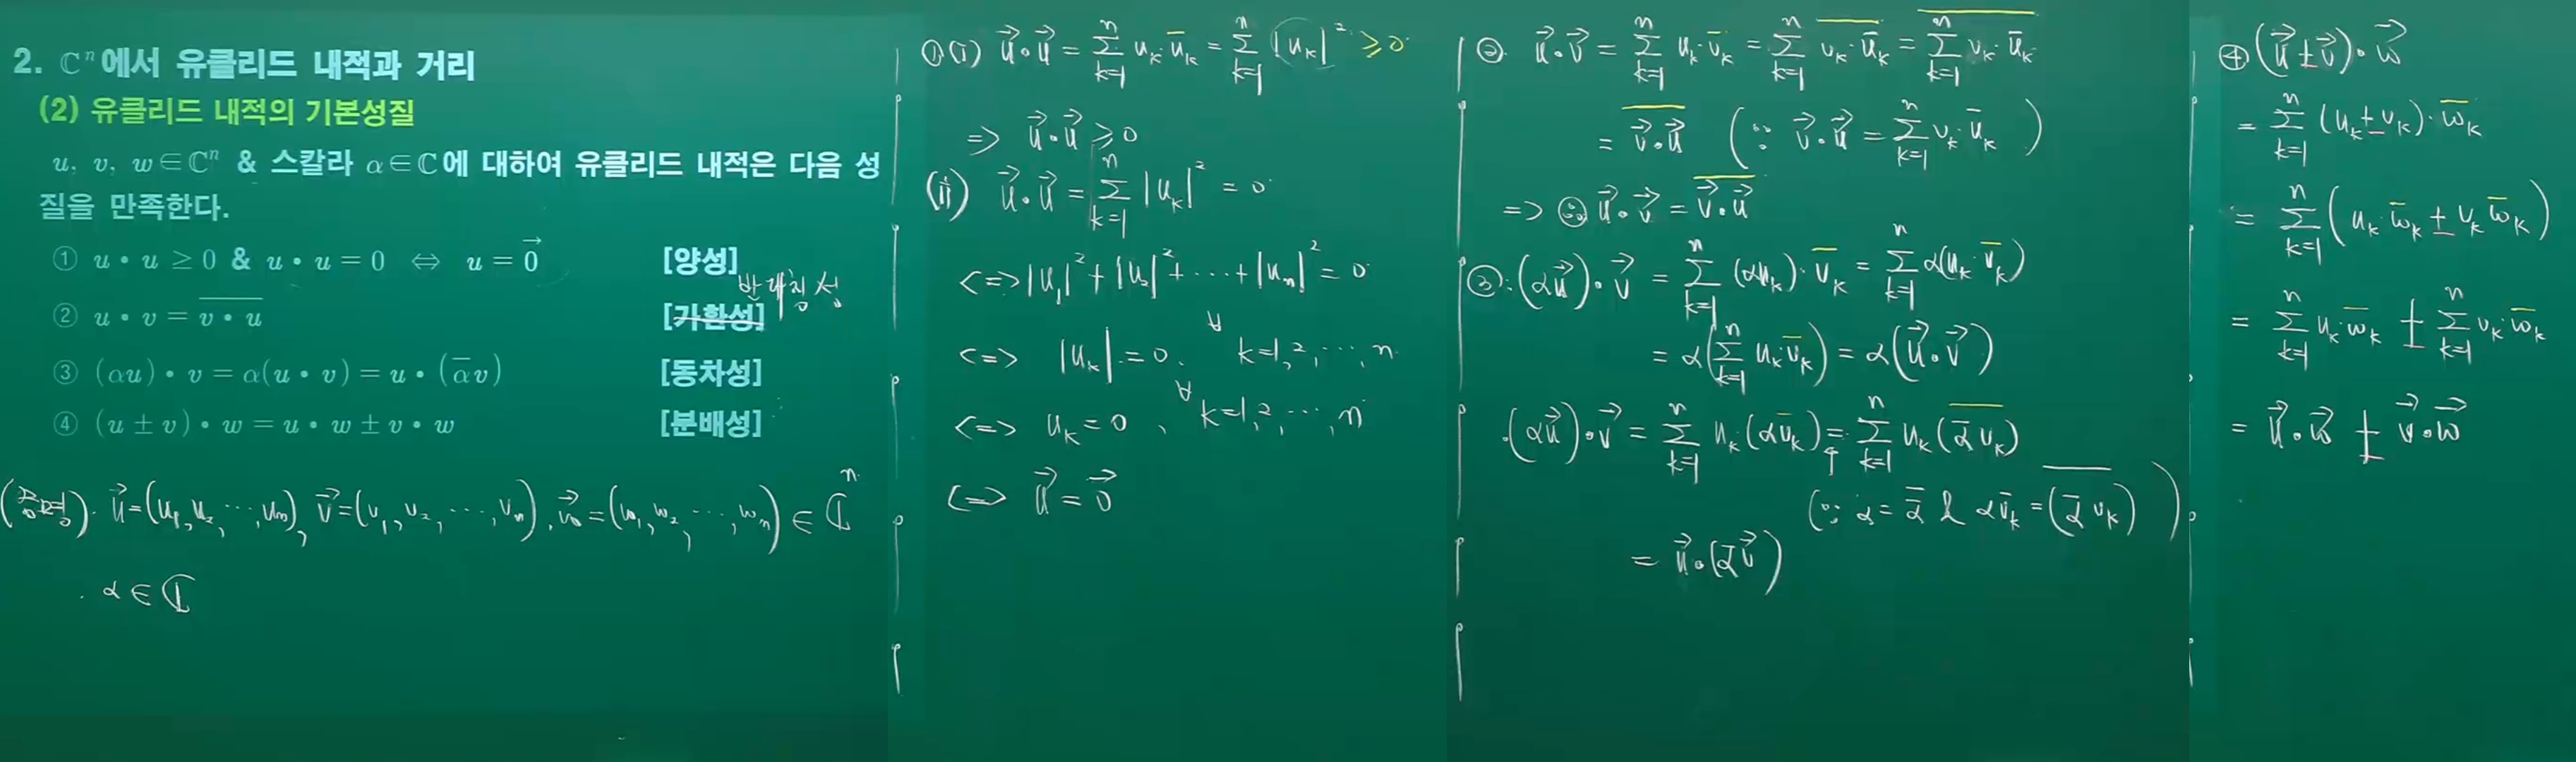 2. ℂⁿ에서 유클리드 내적과 거리
(2) 유클리드 내적의 기본성질
u, v, w∈ℂⁿ & 스칼라 α∈ℂ에 대하여 유클리드 내적은 다음 성
질을 만족한다.
① u • u ≥ 0 & u • u = 0 ⇔ u = \vec{0} [양성]
반대칭성
② u • v = \overline{v • u} [가환성]
③ (αu) • v = α(u • v) = u • (\overline{α}v) [동차성]
④ (u ± v) • w = u • w ± v • w [분배성]
\vec{u}=(u₁, u₂, ⋯, uₙ), \vec{v}=(v₁, v₂, ⋯, vₙ), \vec{w}=(w₁, w₂, ⋯, wₙ) ∈ ℂⁿ
α ∈ ℂ
① (i) \vec{u}•\vec{u} = \sum_{k=1}^{n} u_k·\overline{u}_k = \sum_{k=1}^{n} |u_k|² ≥ 0
=> \vec{u}•\vec{u} ≥ 0
(ii) \vec{u}•\vec{u} = \sum_{k=1}^{n} |u_k|² = 0
<=> |u₁|² + |u₂|² + ⋯ + |uₙ|² = 0
<=> |u_k| = 0, ∀k=1, 2, ⋯, n
<=> u_k = 0, ∀k=1, 2, ⋯, n
<=> \vec{u} = \vec{0}
② \vec{u}•\vec{v} = \sum_{k=1}^{n} u_k·\overline{v}_k = \sum_{k=1}^{n} \overline{v_k·\overline{u}_k} = \overline{\sum_{k=1}^{n} v_k·\overline{u}_k}
= \overline{\vec{v}•\vec{u}} (∵ \vec{v}•\vec{u} = \sum_{k=1}^{n} v_k·\overline{u}_k)
=> ∴ \vec{u}•\vec{v} = \overline{\vec{v}•\vec{u}}
③ · (α\vec{u})•\vec{v} = \sum_{k=1}^{n} (αu_k)·\overline{v}_k = \sum_{k=1}^{n} α(u_k·\overline{v}_k)
= α(\sum_{k=1}^{n} u_k·\overline{v}_k) = α(\vec{u}•\vec{v})
· (α\vec{u})•\vec{v} = \sum_{k=1}^{n} u_k(α\overline{v}_k) = \sum_{k=1}^{n} u_k(\overline{\overline{α}v_k})
(∵ α = \overline{\overline{α}} & α\overline{v}_k = \overline{(\overline{α}v_k)})
= \vec{u}•(\overline{α}\vec{v})
④ (\vec{u}±\vec{v})•\vec{w}
= \sum_{k=1}^{n} (u_k±v_k)·\overline{w}_k
= \sum_{k=1}^{n} (u_k·\overline{w}_k ± v_k·\overline{w}_k)
= \sum_{k=1}^{n} u_k·\overline{w}_k ± \sum_{k=1}^{n} v_k·\overline{w}_k
= \vec{u}•\vec{w} ± \vec{v}•\vec{w}